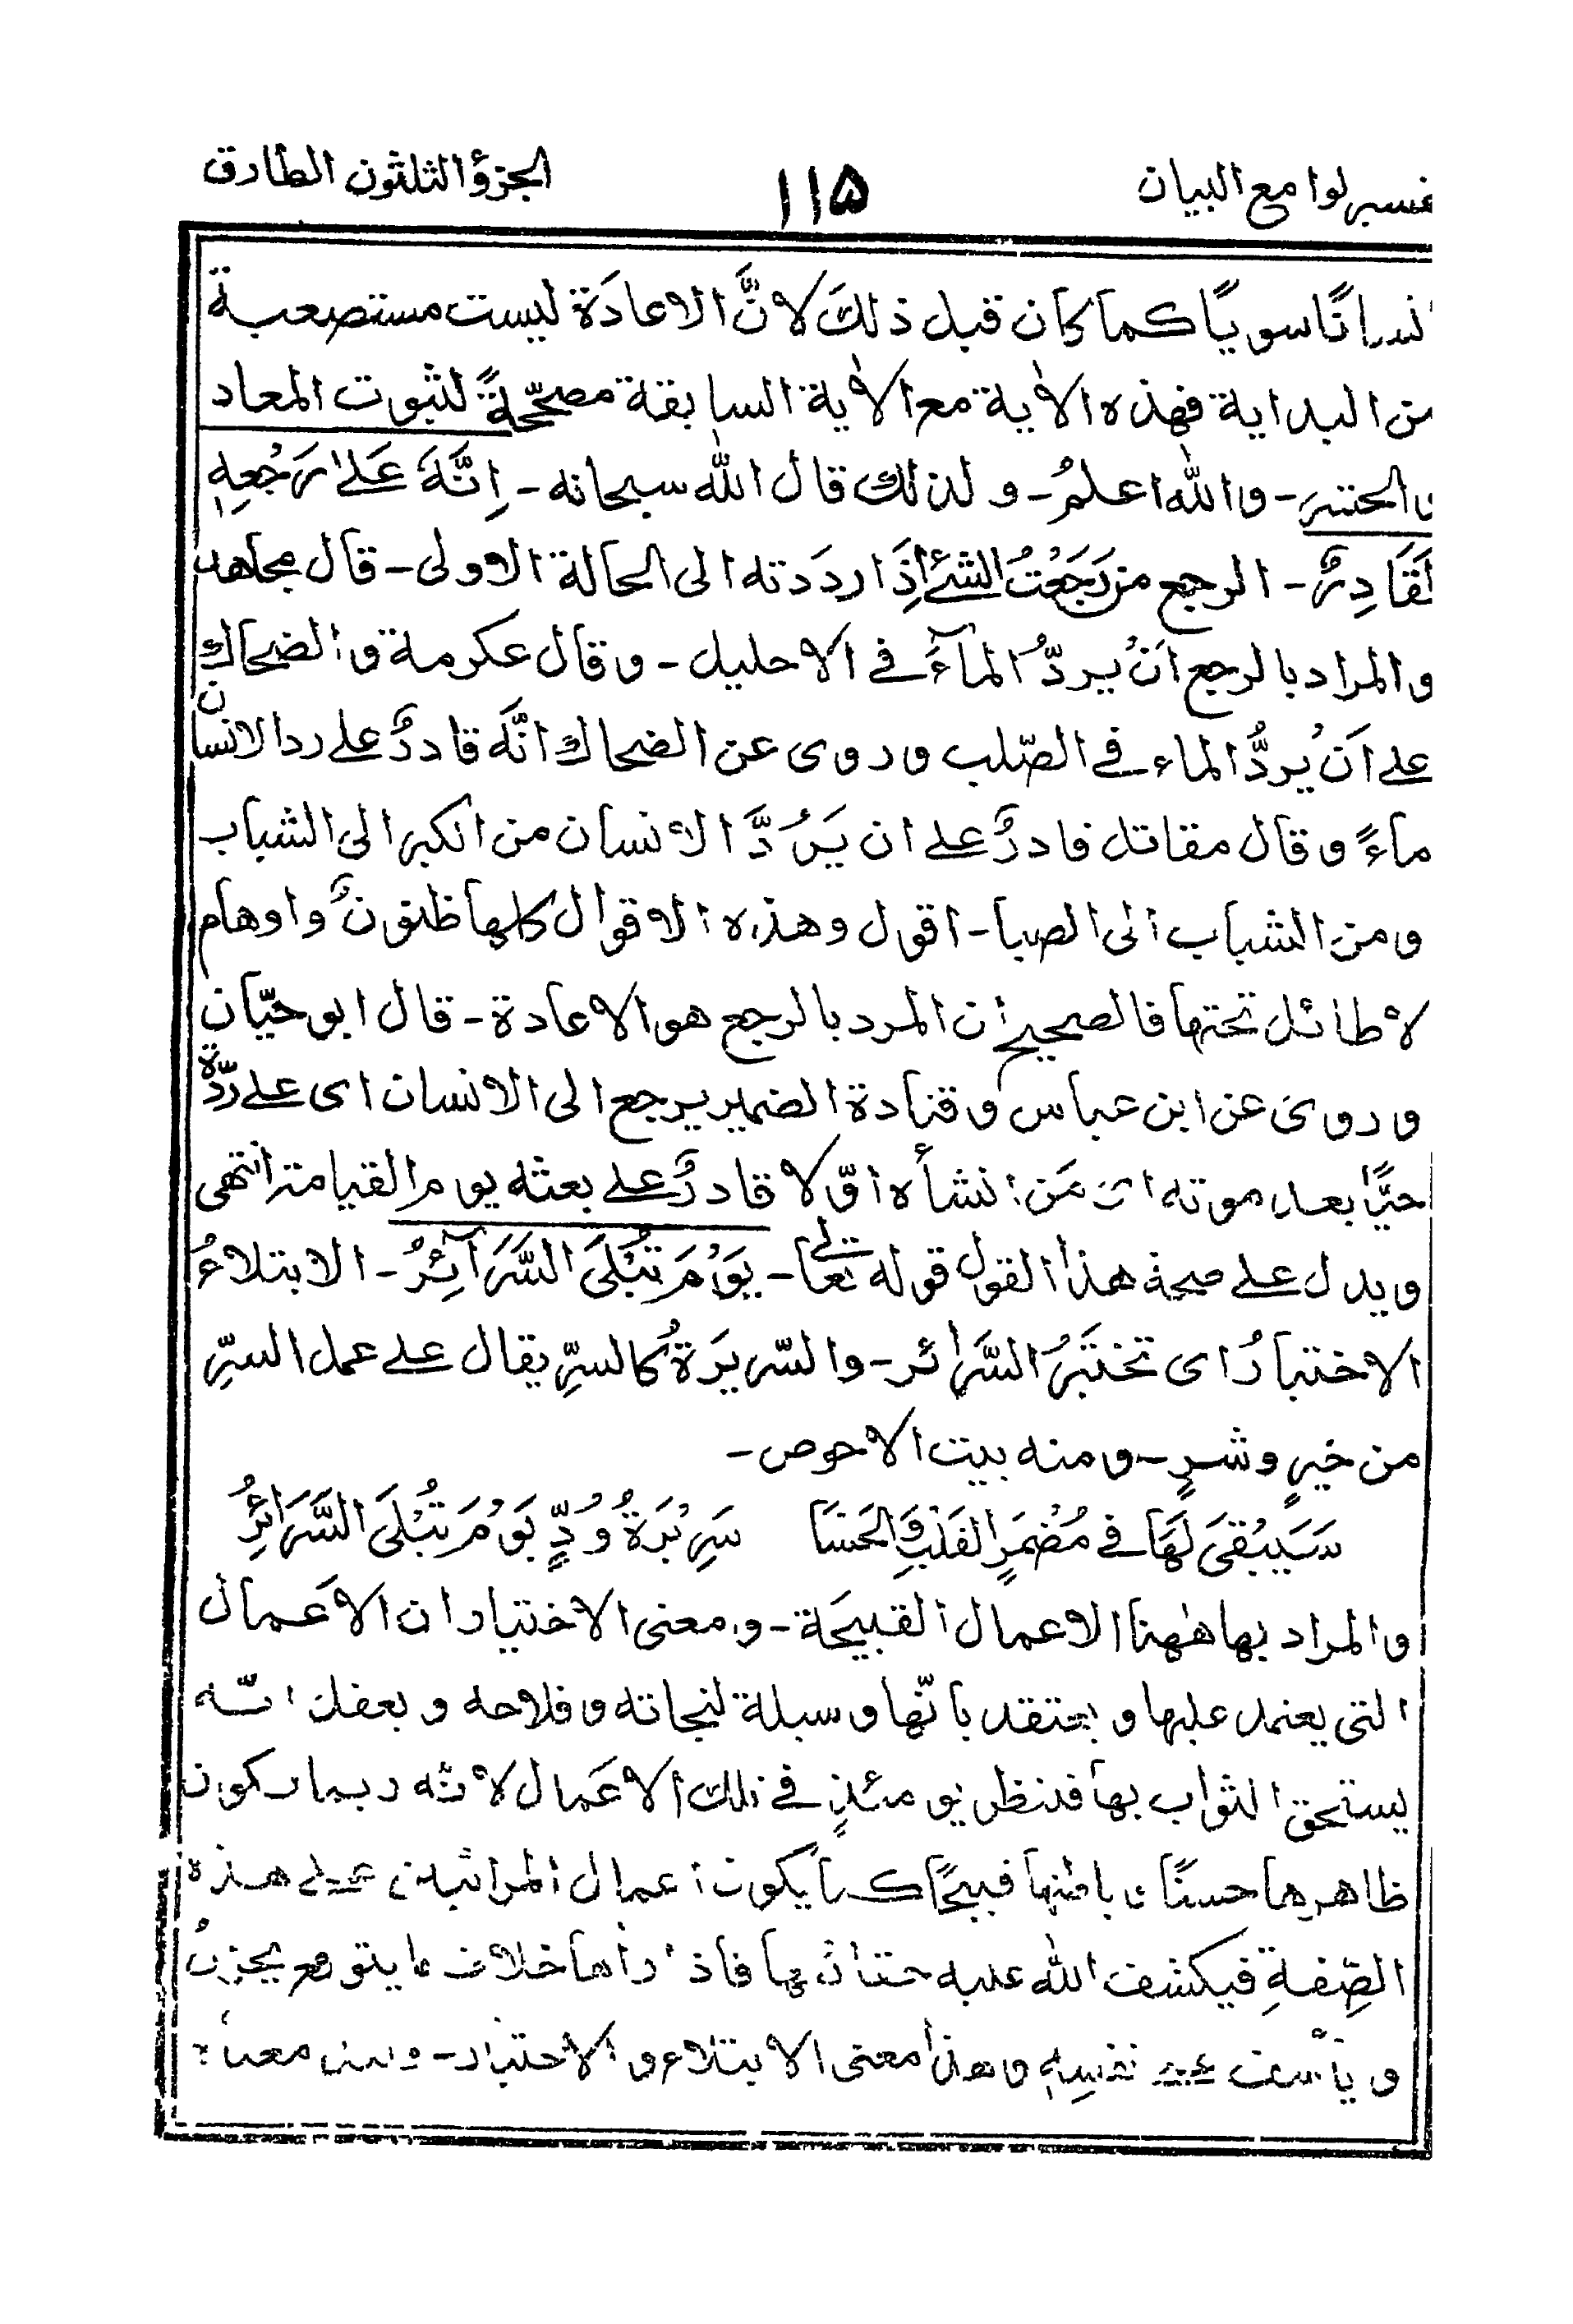 تفسير لوامع البيان ۱۱۵ الجزؤ الثلثون الطارق
انسانًا سويًا كما كان قبل ذلك لانَّ الاعادَة ليست مستصعبة
من البداية فهذه الاٰية مع الاٰية السابقة مصحّحةً لثبوت المعاد
و الحشر - والله اعلمُ - و لذلك قال الله سبحانه - اِنَّهٗ عَلىٰ رَجْعِهٖ
لَقَادِرٌ - الرجع من رَجَعْتُ الشئ اِذَا ردَدته الى الحالة الاولى - قال مجاهد
والمراد بالرجع اَنْ يردّ المآءَ فى الاحليل - وقال عكرمة و الضحاك
على اَن يردُّ الماء فى الصّلب وروى عن الضحاك انَّه قادرٌ على رد الانسان
ماءً وقال مقاتل قادرٌ على ان يَرُدَّ الانسان من الكبر الى الشباب
ومن الشباب الى الصبا - اقول وهذه الاقوال كلها ظنونٌ واوهام
لاطائل تحتها فالصحيح ان المرد بالرجع هو الاعادة - قال ابوحيّان
وروى عن ابن عباس وقتادة الضمير يرجع الى الانسان اى على ردّة
حيًّا بعد موته اى مَن انشأه اوّلا قادرٌ على بعثه يوم القيامة انتهى
ويدل على صحة هذا القول قوله تعالى - يَوْمَ تُبْلَى السَّرَآئِرُ - الابتلاءُ
الاختبارُ اى تختَبَرُ السَّرائر - والسّريرَةُ كالسرِّ يقال على عمل السرِّ
من خيرٍ وشرٍ - ومنه بيت الاحوص -
سَيَبْقَى لَهَا فى مُضْمَرِ القَلْبِ وَالحَشَا سَرِيْرَةُ وُدٍّ يَوْمَ تُبْلَى السَّرَائِرُ
والمراد بها هٰهنا الاعمال القبيحَة - ومعنى الاختيار ان الاعَمال
التى يعتمد عليها ويعتقد بانّها وسيلة لنجاته وفلاحه و انّه
يستحق الثواب بها فننظر يومئذٍ فى ذلك الاعَمال لانّه ربما يكون
ظاهرها حسنًا و باطنها قبيحًا كما يكون اعمال المرائين على هذه
الصِّفةِ فيكشف الله عليه حقائقها فاذا راٰها خلاف ما يتوقع يحزن
و يتأسف على نفسهٖ وهذا معنى الابتلاء و الاختبار -